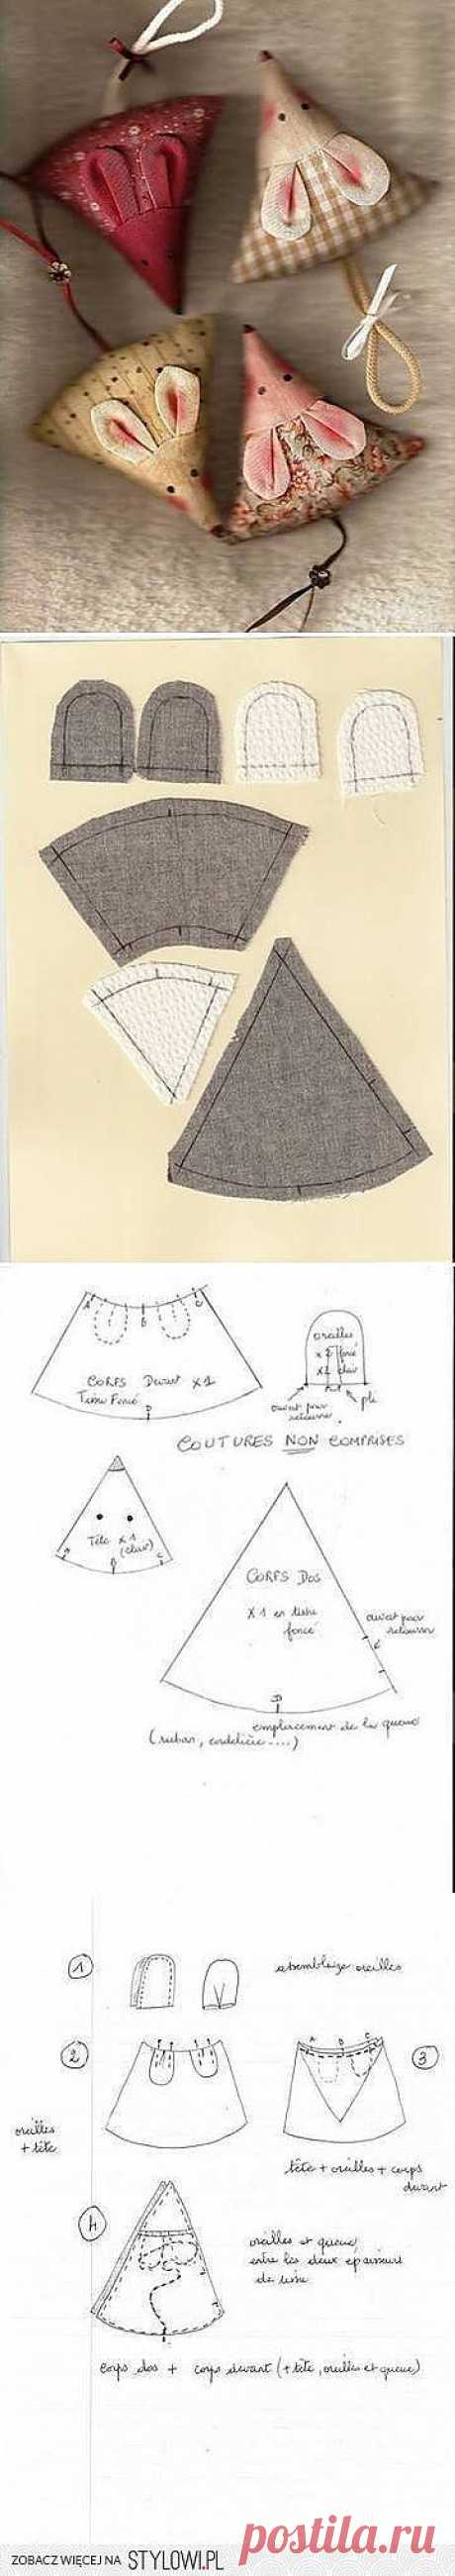 A B C
CORPS Devant x1
Tissu Foncé
D
oreilles
x2 foncé
x2 clair
ouvert pour
retourner
pli
COUTURES NON COMPRISES
Tête x1
(clair)
A B C
CORPS DOS
x1 en tissu
foncé
ouvert pour
retourner
D
emplacement de la queue
(ruban, cordelière....)
1
assemblage oreilles
2
oreilles
+ tête
A B C
3
tête + oreilles + corps
devant
4
oreilles et queue
entre les deux épaisseurs
de tissu
corps dos + corps devant (+ tête, oreilles et queue)
ZOBACZ WIĘCEJ NA STYLOWI.PL
postila.ru